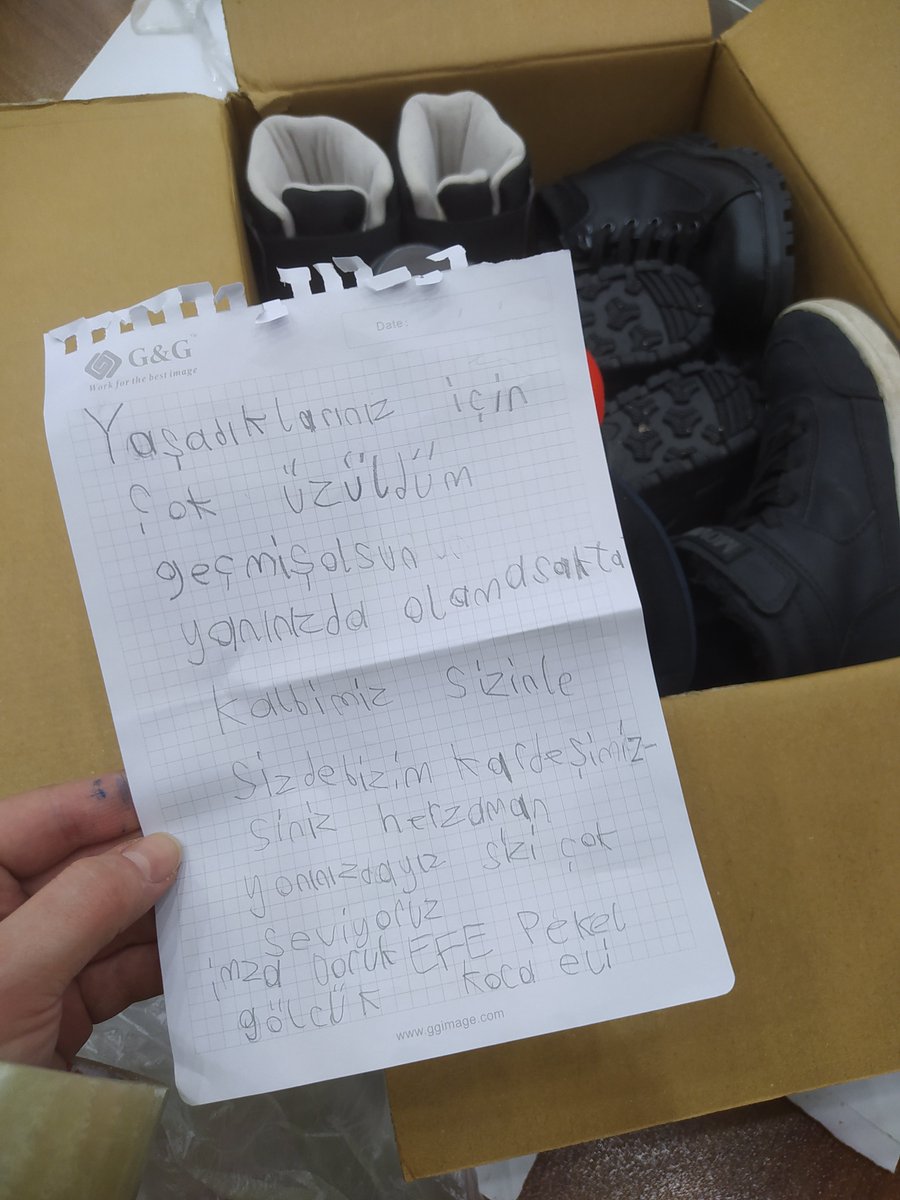 G&G™
Work for the best image
Date:
Yaşadıklarınız için
çok üzüldüm
geçmişolsun
yanınızda olamasakta
kalbimiz sizinle
Sizdebizim kardeşimiz-
siniz herzaman
yanınızdayız sizi çok
seviyoruz
imza Doruk EFE Pekel
gölcük koca eli
www.ggimage.com